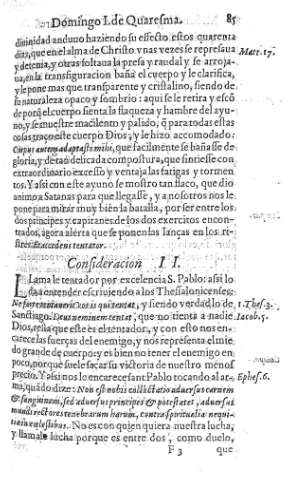 Domingo I. de Quaresma. 85
diuinidad anduuo haziendo su effecto estos quarenta
dias, que en el alma de Christo vnas vezes se represaua
y detenia, y otras soltaua la presa y raudal y se arroja-
ua, en la transfiguracion baña el cuerpo y le clarifica,
y le pone mas que transparente y cristalino, siendo de
su naturaleza opaco y sombrio: aqui se le retira y escō
de porq̃ el cuerpo sienta la flaqueza y hambre del ayu-
no, y se muestre macilento y palido, q̃ para todas estas
cosas traço este cuerpo Dios, y le hizo accomodado:
Corpus autem adaptasti mihi, que facilmente se bañasse de
gloria, y de tã delicada compostura, que sintiesse con
extraordinario excesso y ventaja las fatigas y tormen
tos. Y assi con este ayuno se mostro tan flaco, que dio
animo a Satanas para que llegasse, y a nosotros nos le
pone para mirar muy bien la batalla, por ser entre los
dos principes y capitanes de los dos exercitos encon-
trados, agora alerta que se ponen las lanças en los ri-
stres. Et accedens tentator.
Matt. 17.
Consideracion II.
Llama le tentador por excelencia S. Pablo: assi lo
da a entender escriuiendo a los Thesalonicenses:
Ne forte tentauerit vos is qui tentat, y siendo verdad lo de
Santiago. Deus neminem tentat, que no tienta a nadie
Dios, resta que este es el tentador, y con esto nos en-
carece las fuerças del enemigo, y nos representa el mie
do grande de cuerpo, y es bien no tener el enemigo en
poco, porque suele sacar su victoria de nuestro menos
precio. Y assi nos le encarece sant Pablo tocando al ar-
ma, quãdo dize: Non est nobis colluctatio aduersus carnem
& sanguinem, sed aduersus principes & potestates, aduersus
mundi rectores tenebrarum harum, contra spiritualia nequi-
tiæ in cælestibus. No es con quien quiera nuestra lucha,
y llamale lucha porque es entre dos, como duelo,
1. Thes. 3.
Iacob. 5.
Ephes. 6.
F 3 que